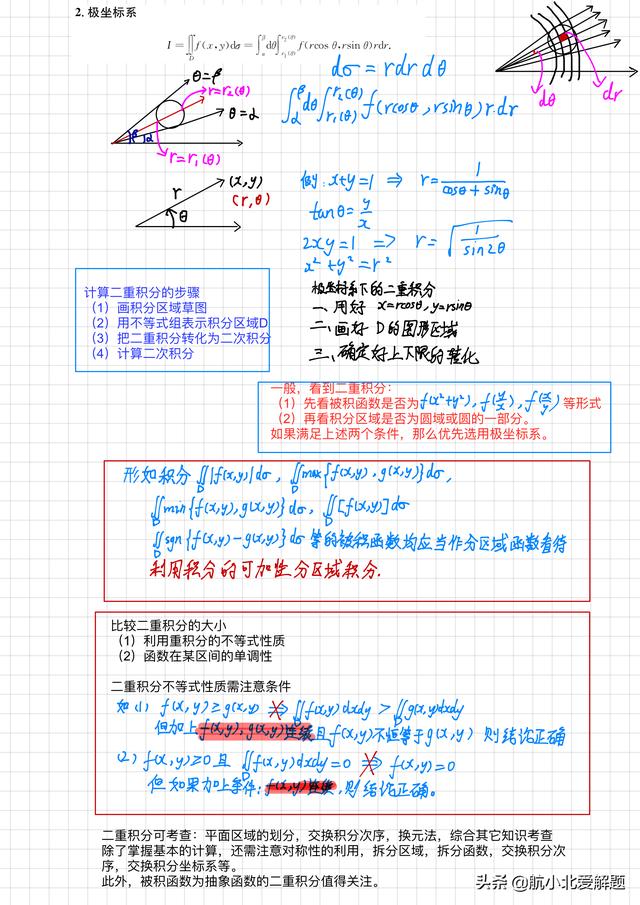 2. 极坐标系
I = ∬_D f(x, y)dσ = ∫_α^β dθ ∫_{r₁(θ)}^{r₂(θ)} f(rcos θ, rsin θ)rdr.
dσ = rdr dθ
dθ
dr
θ=β
r=r₂(θ)
θ=α
β
α
r=r₁(θ)
∫_α^β dθ ∫_{r₁(θ)}^{r₂(θ)} f(rcosθ, rsinθ) r·dr
r
(x,y)
(r,θ)
θ
例: x+y=1 ⇒ r= 1/(cosθ+sinθ)
tanθ= y/x
2xy=1 => r= √(1/sin2θ)
x²+y²=r²
极坐标系下的二重积分
一、用好 x=rcosθ, y=rsinθ
二、画好 D的图形区域
三、确定好上下限的转化
计算二重积分的步骤
（1）画积分区域草图
（2）用不等式组表示积分区域D
（3）把二重积分转化为二次积分
（4）计算二次积分
一般，看到二重积分：
（1）先看被积函数是否为f(x²+y²), f(y/x), f(x/y)等形式
（2）再看积分区域是否为圆域或圆的一部分。
如果满足上述两个条件，那么优先选用极坐标系。
形如积分 ∬_D |f(x,y)|dσ, ∬_D max{f(x,y), g(x,y)}dσ,
∬_D min{f(x,y), g(x,y)}dσ, ∬_D [f(x,y)]dσ
∬_D sgn{f(x,y)-g(x,y)}dσ 等的被积函数均应当作分区域函数看待
利用积分的可加性分区域积分.
比较二重积分的大小
（1）利用重积分的不等式性质
（2）函数在某区间的单调性
二重积分不等式性质需注意条件
如 (1) f(x,y)≥g(x,y) ⇒ ∬_D f(x,y)dxdy > ∬_D g(x,y)dxdy
但加上 f(x,y), g(x,y)连续且f(x,y)不恒等于g(x,y) 则结论正确
(2) f(x,y)≥0且 ∬_D f(x,y)dxdy=0 ⇒ f(x,y)=0
但如果加上条件: f(x,y)连续, 则结论正确。
二重积分可考查：平面区域的划分，交换积分次序，换元法，综合其它知识考查
除了掌握基本的计算，还需注意对称性的利用，拆分区域，拆分函数，交换积分次
序，交换积分坐标系等。
此外，被积函数为抽象函数的二重积分值得关注。
头条 @航小北爱解题